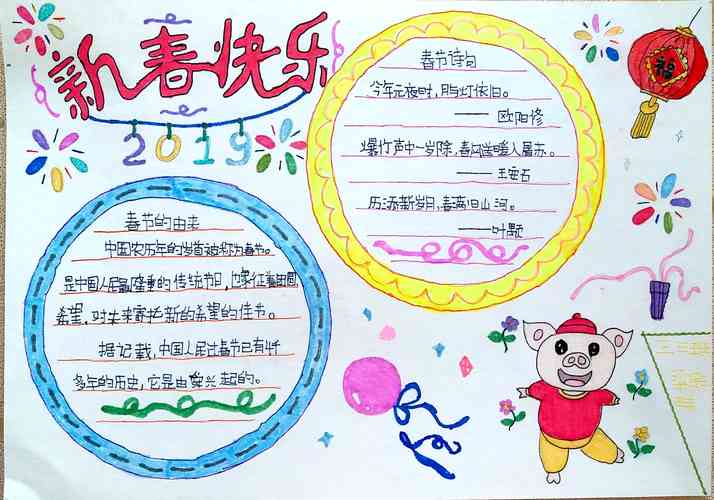 新春快乐
2019
福
春节诗句
今年元夜时,月与灯依旧。
—— 欧阳修
爆竹声中一岁除,春风送暖入屠苏.
—— 王安石
历添新岁月,春满旧山河。
——叶颙
春节的由来
中国农历年的岁首被称为春节。
是中国人民最隆重的传统节日,也象征着团圆,
希望,对未来寄托新的希望的佳节。
据记载,中国人民过春节已有4千
多年的历史,它是由舜兴起的。